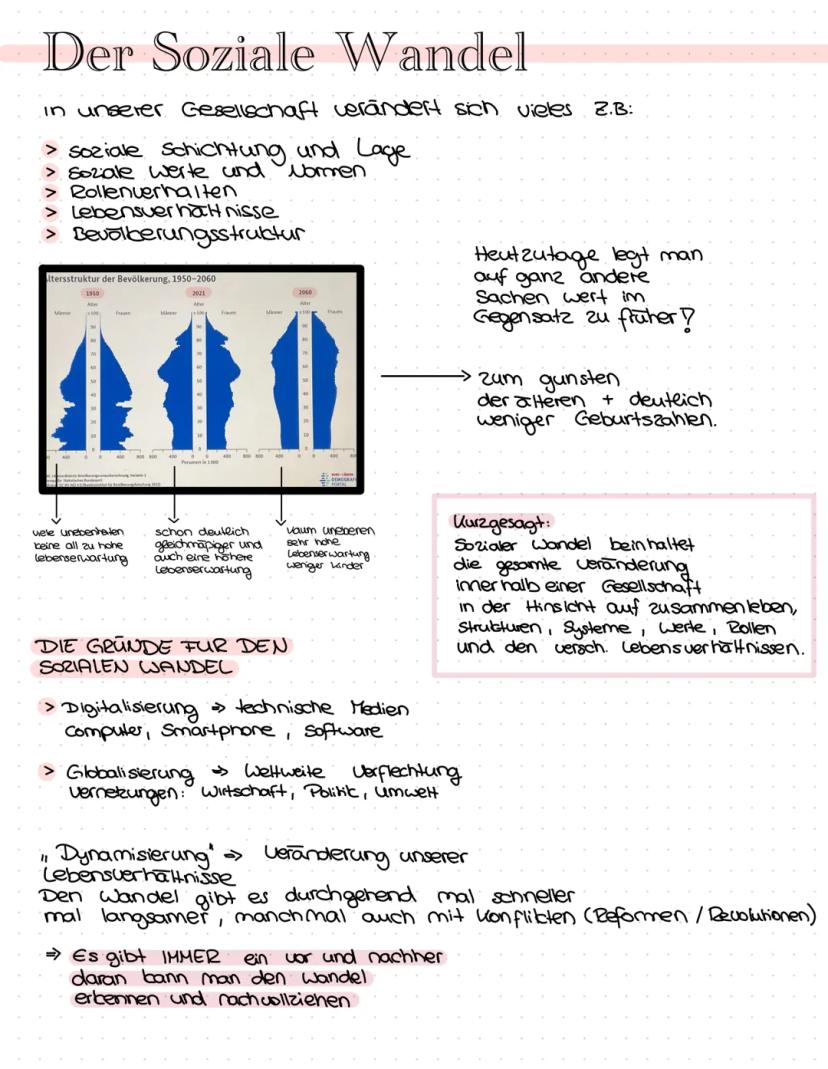 Der Soziale Wandel
in unserer Gesellschaft verändert sich vieles z.B:
> soziale Schichtung und Lage
> soziale Werte und Normen
> Rollenverhalten
> Lebensverhältnisse
> Bevölkerungsstruktur
Heutzutage legt man
auf ganz andere
Sachen wert im
Gegensatz zu früher?
ltersstruktur der Bevölkerung, 1950–2060
1950 2021 2060
Alter Alter Alter
Männer ≥100 Frauen Männer ≥100 Frauen Männer ≥100 Frauen
90 90 90
80 80 80
70 70 70
60 60 60
50 50 50
40 40 40
30 30 30
20 20 20
10 10 10
0 0 0
400 0 0 400 800 800 400 0 0 400 800 800 400 0 0 400
Personen in 1 000
DEMOGRAFI
PORTAL
→ zum gunsten
der älteren + deutlich
weniger Geburtszahlen.
viele unebenheiten
keine all zu hohe
lebenserwartung
schon deutlich
gleichmäßiger und
auch eine höhere
lebenserwartung
kaum unebenen
sehr hohe
Lebenserwartung
weniger kinder
Kurzgesagt:
Sozialer Wandel beinhaltet
die gesamte Veränderung
innerhalb einer Gesellschaft
in der Hinsicht auf zusammenleben,
Strukturen, Systeme, Werte, Rollen
und den versch. Lebensverhältnissen.
DIE GRÜNDE FÜR DEN
SOZIALEN WANDEL
> Digitalisierung ⇒ technische Medien
Computer, Smartphone, Software
> Globalisierung ⇒ Weltweite Verflechtung
Vernetzungen: Wirtschaft, Politik, Umwelt
„Dynamisierung" ⇒ Veränderung unserer
Lebensverhältnisse
Den Wandel gibt es durchgehend mal schneller
mal langsamer, manchmal auch mit Konflikten (Reformen / Revolutionen)
⇒ Es gibt IMMER ein vor und nachher
daran kann man den Wandel
erkennen und nachvollziehen